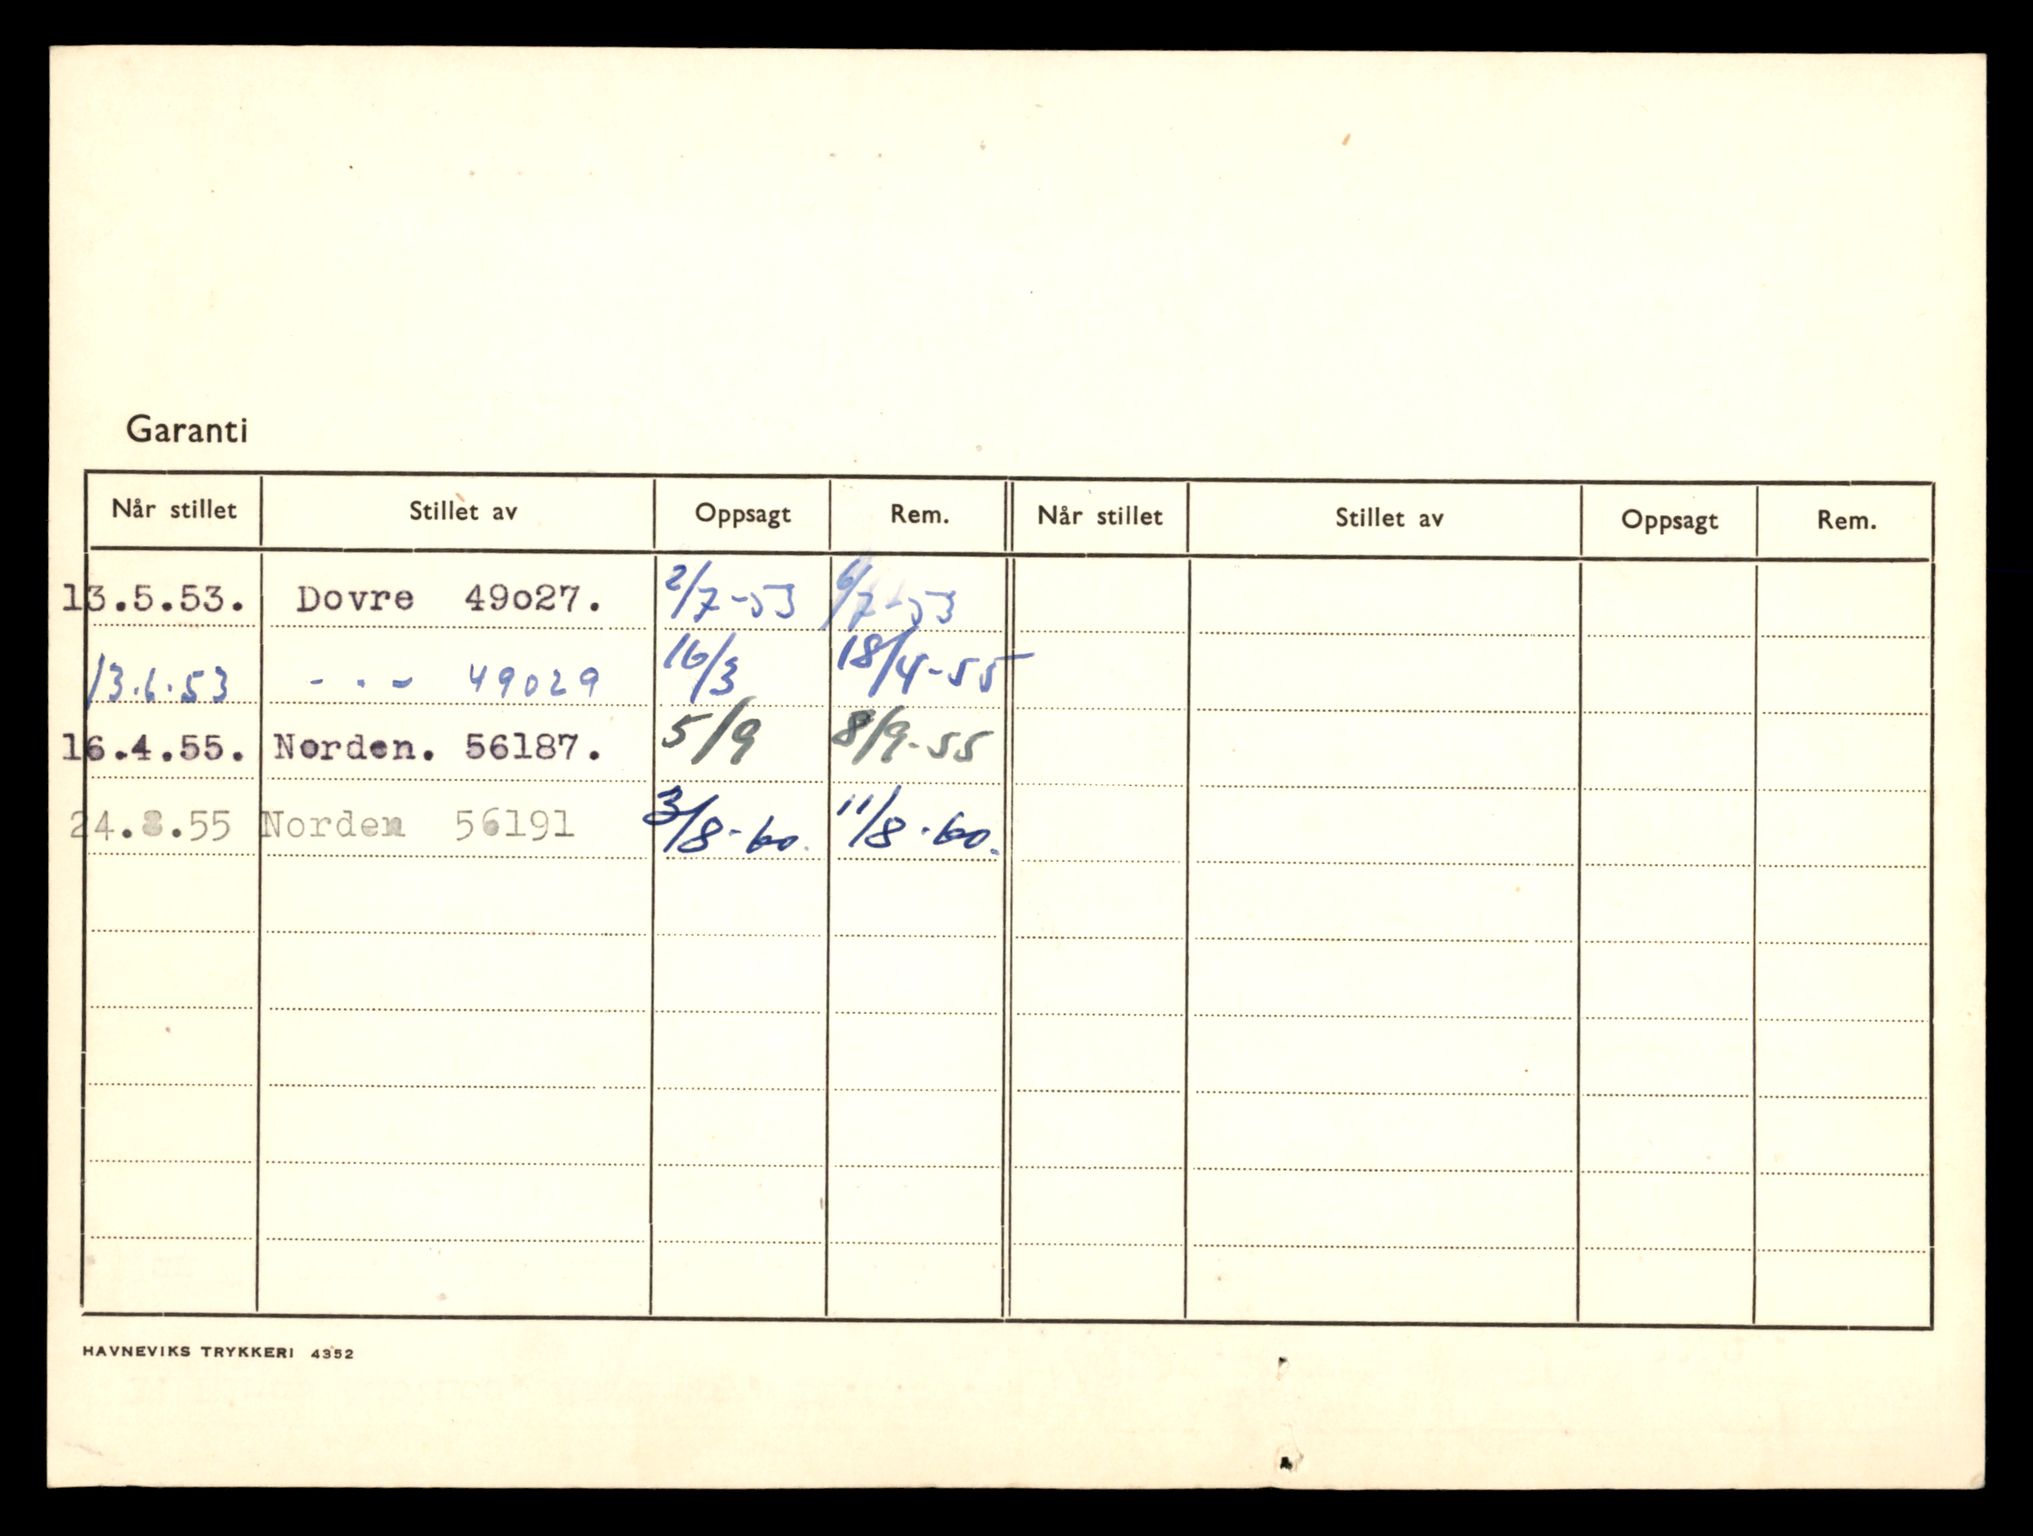 Garanti
Når stillet Stillet av Oppsagt Rem. Når stillet Stillet av Oppsagt Rem.
13.5.53. Dovre 49027. 2/7-53 6/7-53
13.6.53 - . - 49029 16/3 18/4-55
16.4.55. Norden. 56187. 5/9 8/9-55
24.8.55 Norden 56191 3/8-60. 11/8-60.
HAVNEVIKS TRYKKERI 4352